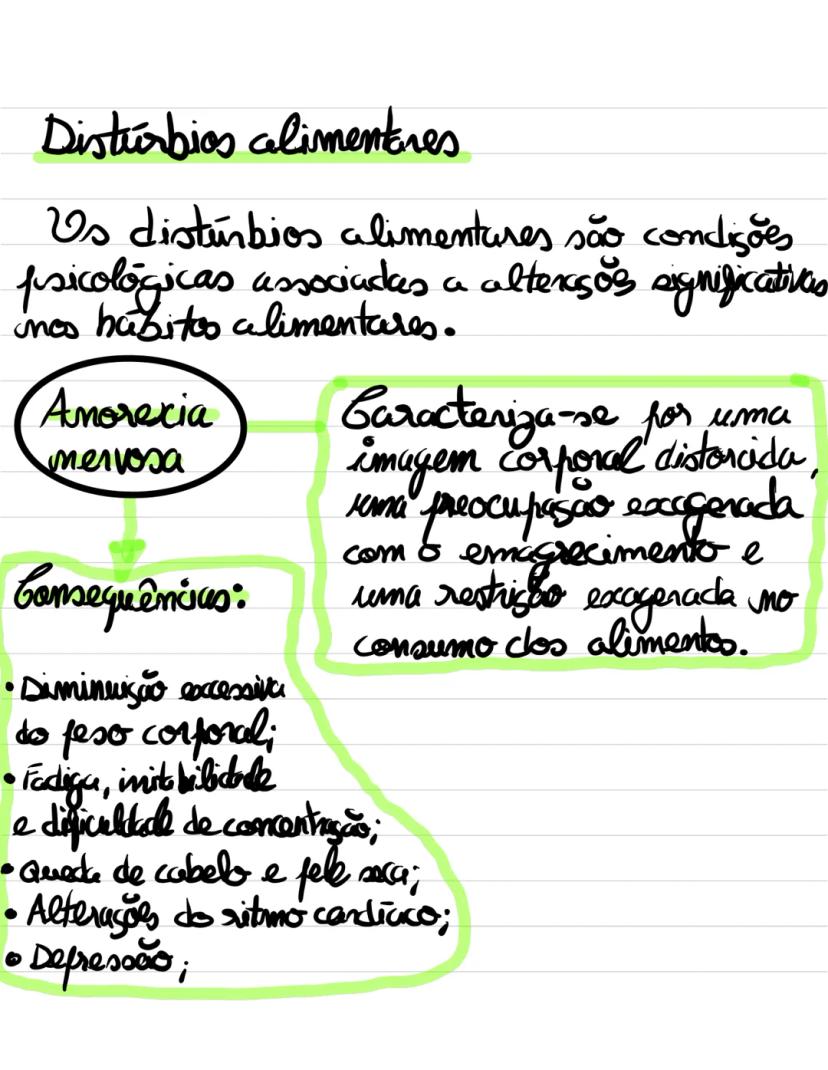 Distúrbios alimentares
Os distúrbios alimentares são condições
psicológicas associadas a alterações significativas
nos hábitos alimentares.
Anorexia
nervosa
Caracteriza-se por uma
imagem corporal distorcida,
uma preocupação exagerada
com o emagrecimento e
uma restrição exagerada no
consumo dos alimentos.
Consequências:
• Diminuição excessiva
do peso corporal;
• Fadiga, irritabilidade
e dificuldade de concentração;
• Queda de cabelo e pele seca;
• Alterações do ritmo cardíaco;
• Depressão;